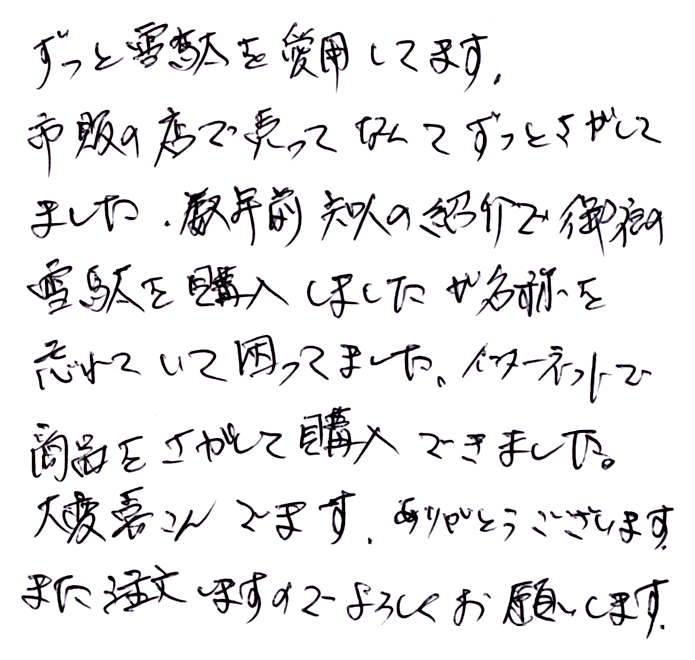 ずっと雪駄を愛用してます。
市販の店で売ってなくてずっとさがして
ました。数年前知人の紹介で御宿の
雪駄を購入しましたが名称を
忘れていて困ってました。インターネットで
商品をさがして購入できました。
大変喜こんでます。ありがとうございます。
また注文しますのでよろしくお願いします。